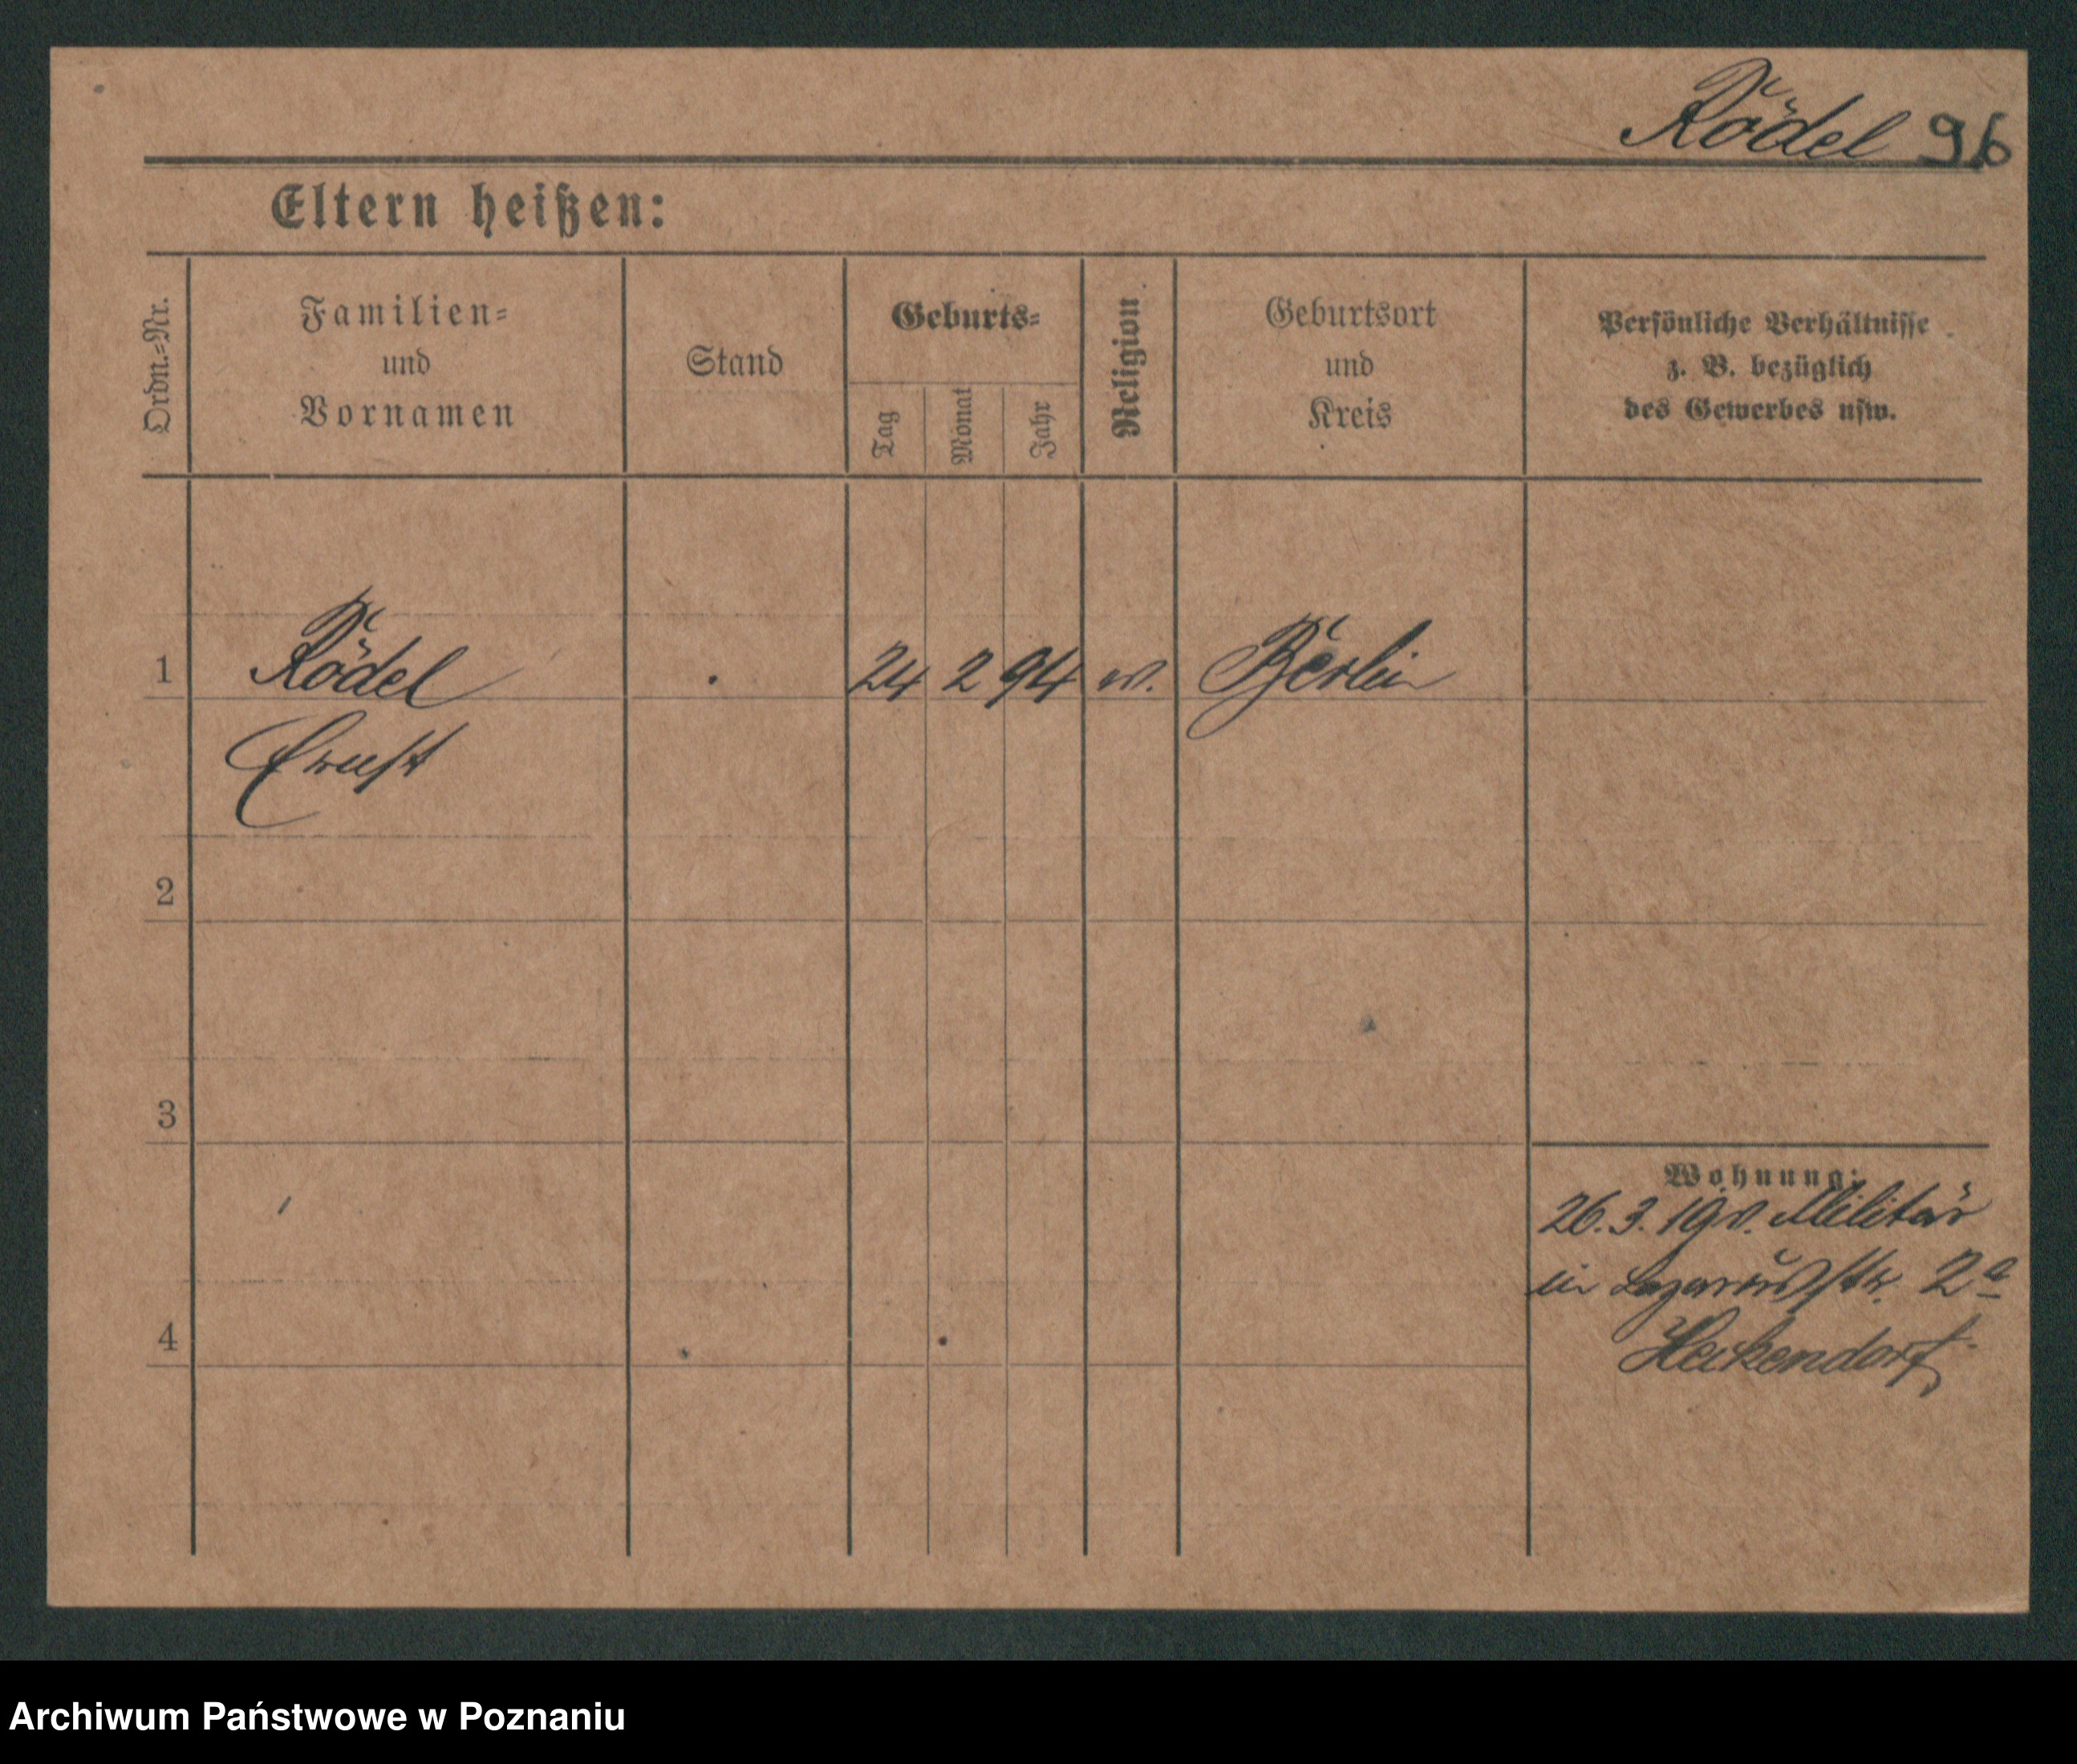 Rödel 96
Eltern heißen:
Ordn.=Nr.
Familien=
und
Vornamen
Stand
Geburts=
Tag
Monat
Jahr
Religion
Geburtsort
und
Kreis
Persönliche Verhältnisse
z. B. bezüglich
des Gewerbes usw.
1 Rödel 24 2 94 Berlin
Ernst
2
3
4
Wohnung:
26.3.19 v. Militär
in Lazarusstr. 2a
Heckendorf
Archiwum Państwowe w Poznaniu